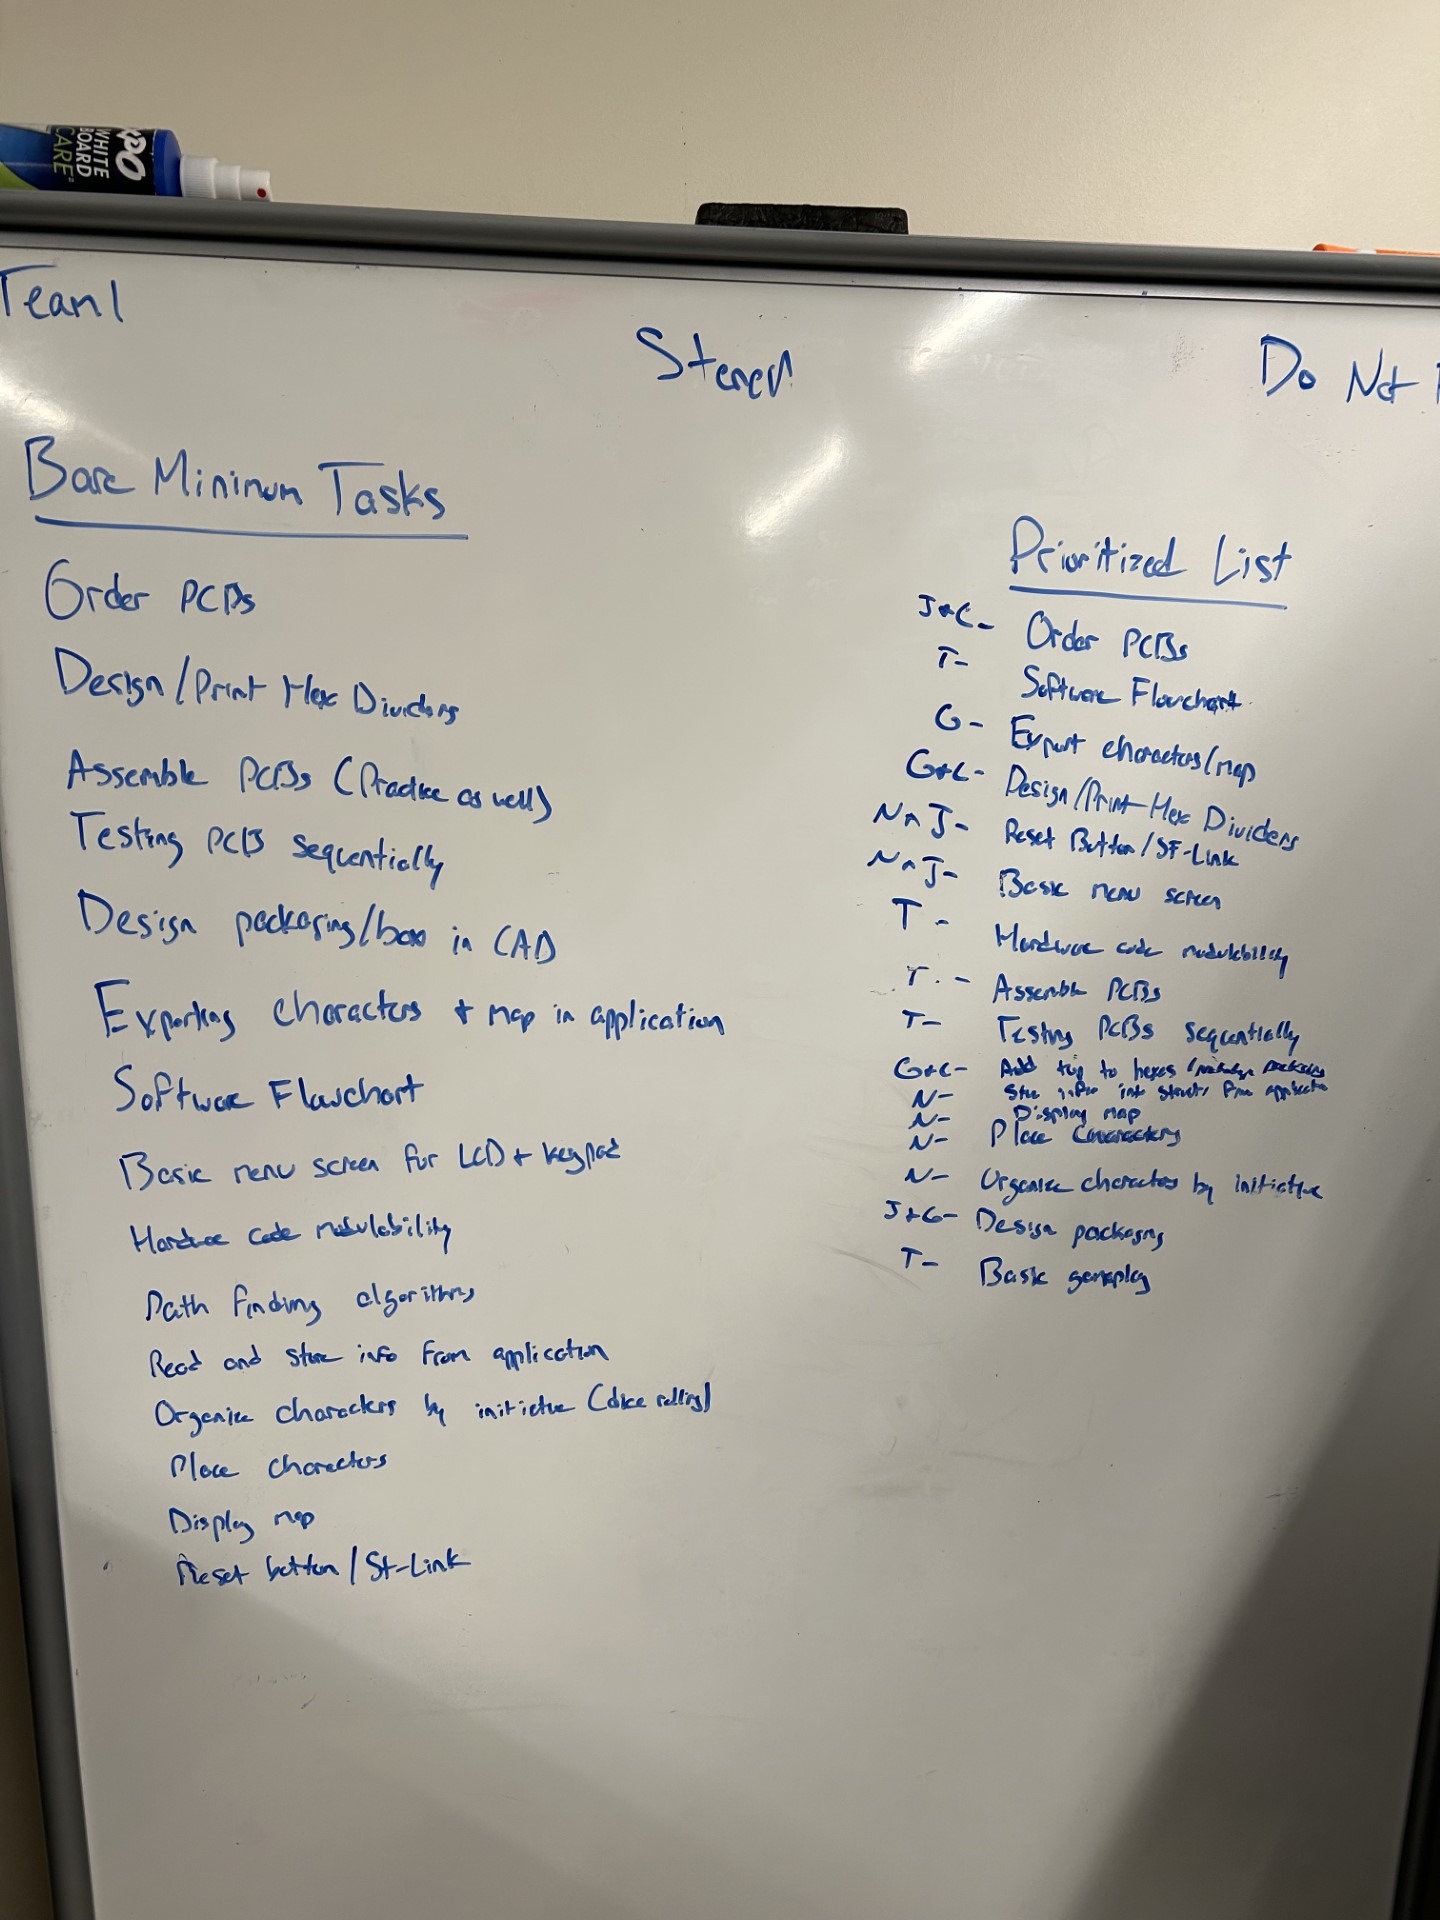 EXPO
WHITE
BOARD
CARE
Team 1
Do Not
Bare Minimum Tasks
Order PCBs
Design/Print Hex Dividers
Assemble PCBs (Practice as well)
Testing PCB sequentially
Design packaging/box in CAD
Exporting characters + map in application
Software Flowchart
Basic menu screen for LCD + keypad
Hardware code modulability
Path finding algorithms
Read and store info from application
Organize characters by initiative (dice rolling)
Place characters
Display map
Reset button / St-Link
Prioritized List
J+C- Order PCBs
T- Software Flowchart
G- Export characters/map
G+C- Design/Print Hex Dividers
N^J- Reset Button/ST-Link
N^J- Basic menu screen
T- Hardware code modulability
T.- Assemble PCBs
T- Testing PCBs sequentially
G+C- Add top to hexes
N- Store info into structs from application
N- Display map
N- Place Characters
N- Organize characters by initiative
J+G- Design packaging
T- Basic gameplay